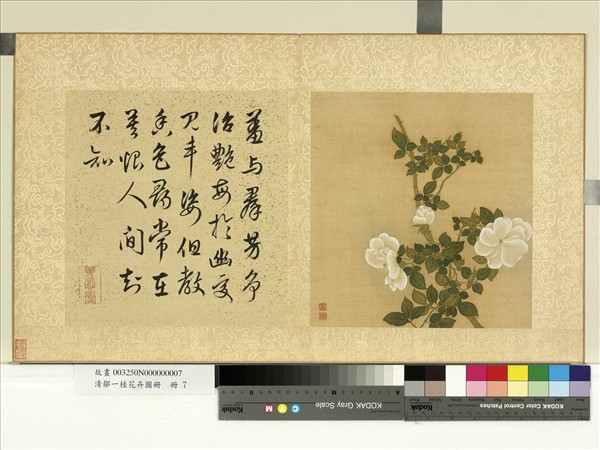 羞与羣芳争
冶艷每於幽處
見丰姿但教
香色尋常在
莫恨人間知
不知
故畫 003250N000000007
清鄒一桂花卉圖冊 冊 7
KODAK Gray Scale
C Y M
Kodak
KODAK Color Control Patches
Kodak